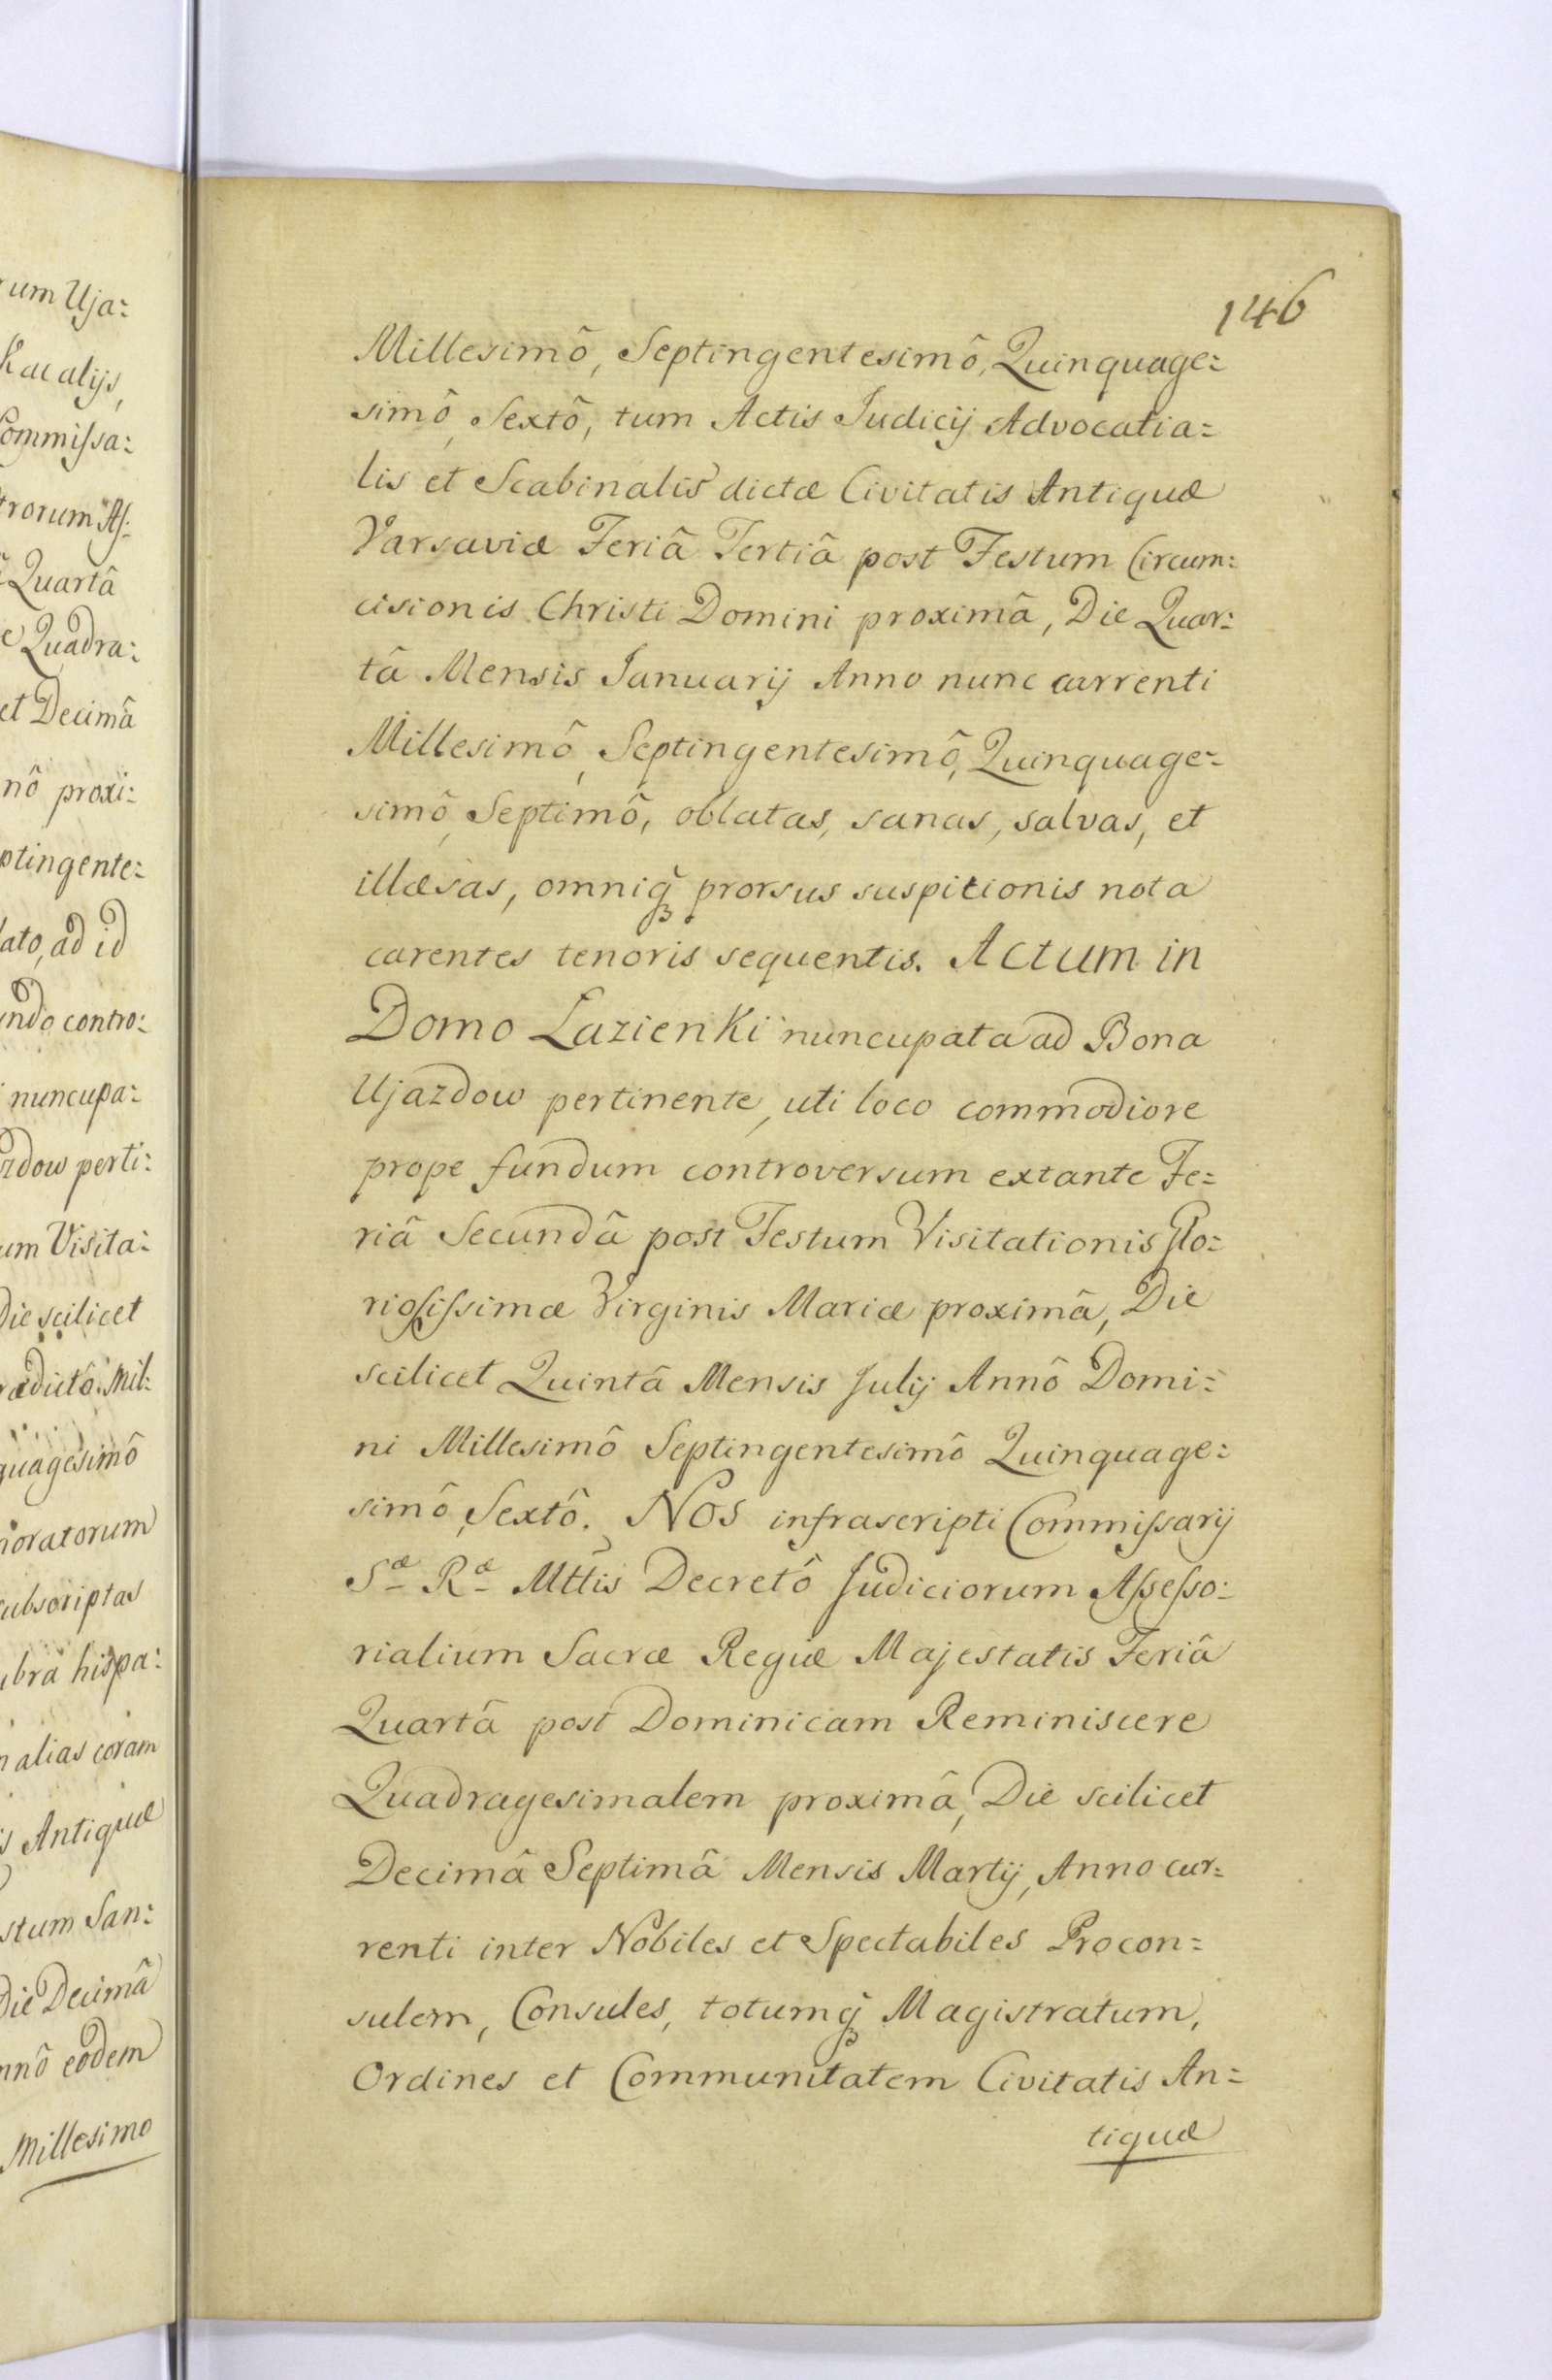 um Uja:
alijs,
Commissa:
trorum As:
Quartâ
Quadra:
et Decimâ
nô proxi:
ptingente:
lato, ad id
undo contro:
nuncupa:
zdow perti:
um Visita:
Die scilicet
ædictô Mil:
quagesimô
noratorum
subscriptas
ubrâ hispa:
alias coram
s Antiquæ
stum San:
Die Decimâ
nnô eodem
Millesimo
146
Millesimô, Septingentesimô, Quinquage:
simô, Sextô, tum Actis Judicij Advocatia:
lis et Scabinalis dictæ Civitatis Antiquæ
Varsaviæ Feriâ Tertiâ post Festum Circum:
cisionis Christi Domini proximâ, Die Quar:
tâ Mensis Januarij Anno nunc currenti
Millesimô, Septingentesimô, Quinquage:
simô, Septimô, oblatas, sanas, salvas, et
illæsas, omniq̃ prorsus suspicionis nota
carentes tenoris sequentis. Actum in
Domo Lazienki nuncupata ad Bona
Ujazdow pertinente, uti loco commodiore
prope fundum controversum extante Fe:
riâ Secundâ post Festum Visitationis Glo:
riosissimæ Virginis Mariæ proximâ, Die
scilicet Quintâ Mensis Julij Annô Domi:
ni Millesimô Septingentesimô Quinquage:
simô, Sextô. Nos infrascripti Commissarij
Sæ Ræ Mttis Decretô Judiciorum Assesso:
rialium Sacræ Regiæ Majestatis Feriâ
Quartâ post Dominicam Reminiscere
Quadragesimalem proximâ, Die scilicet
Decimâ Septimâ Mensis Martij, Anno cur:
renti inter Nobiles et Spectabiles Procon:
sulem, Consules, totumq̃ Magistratum,
Ordines et Communitatem Civitatis An:
tiquæ